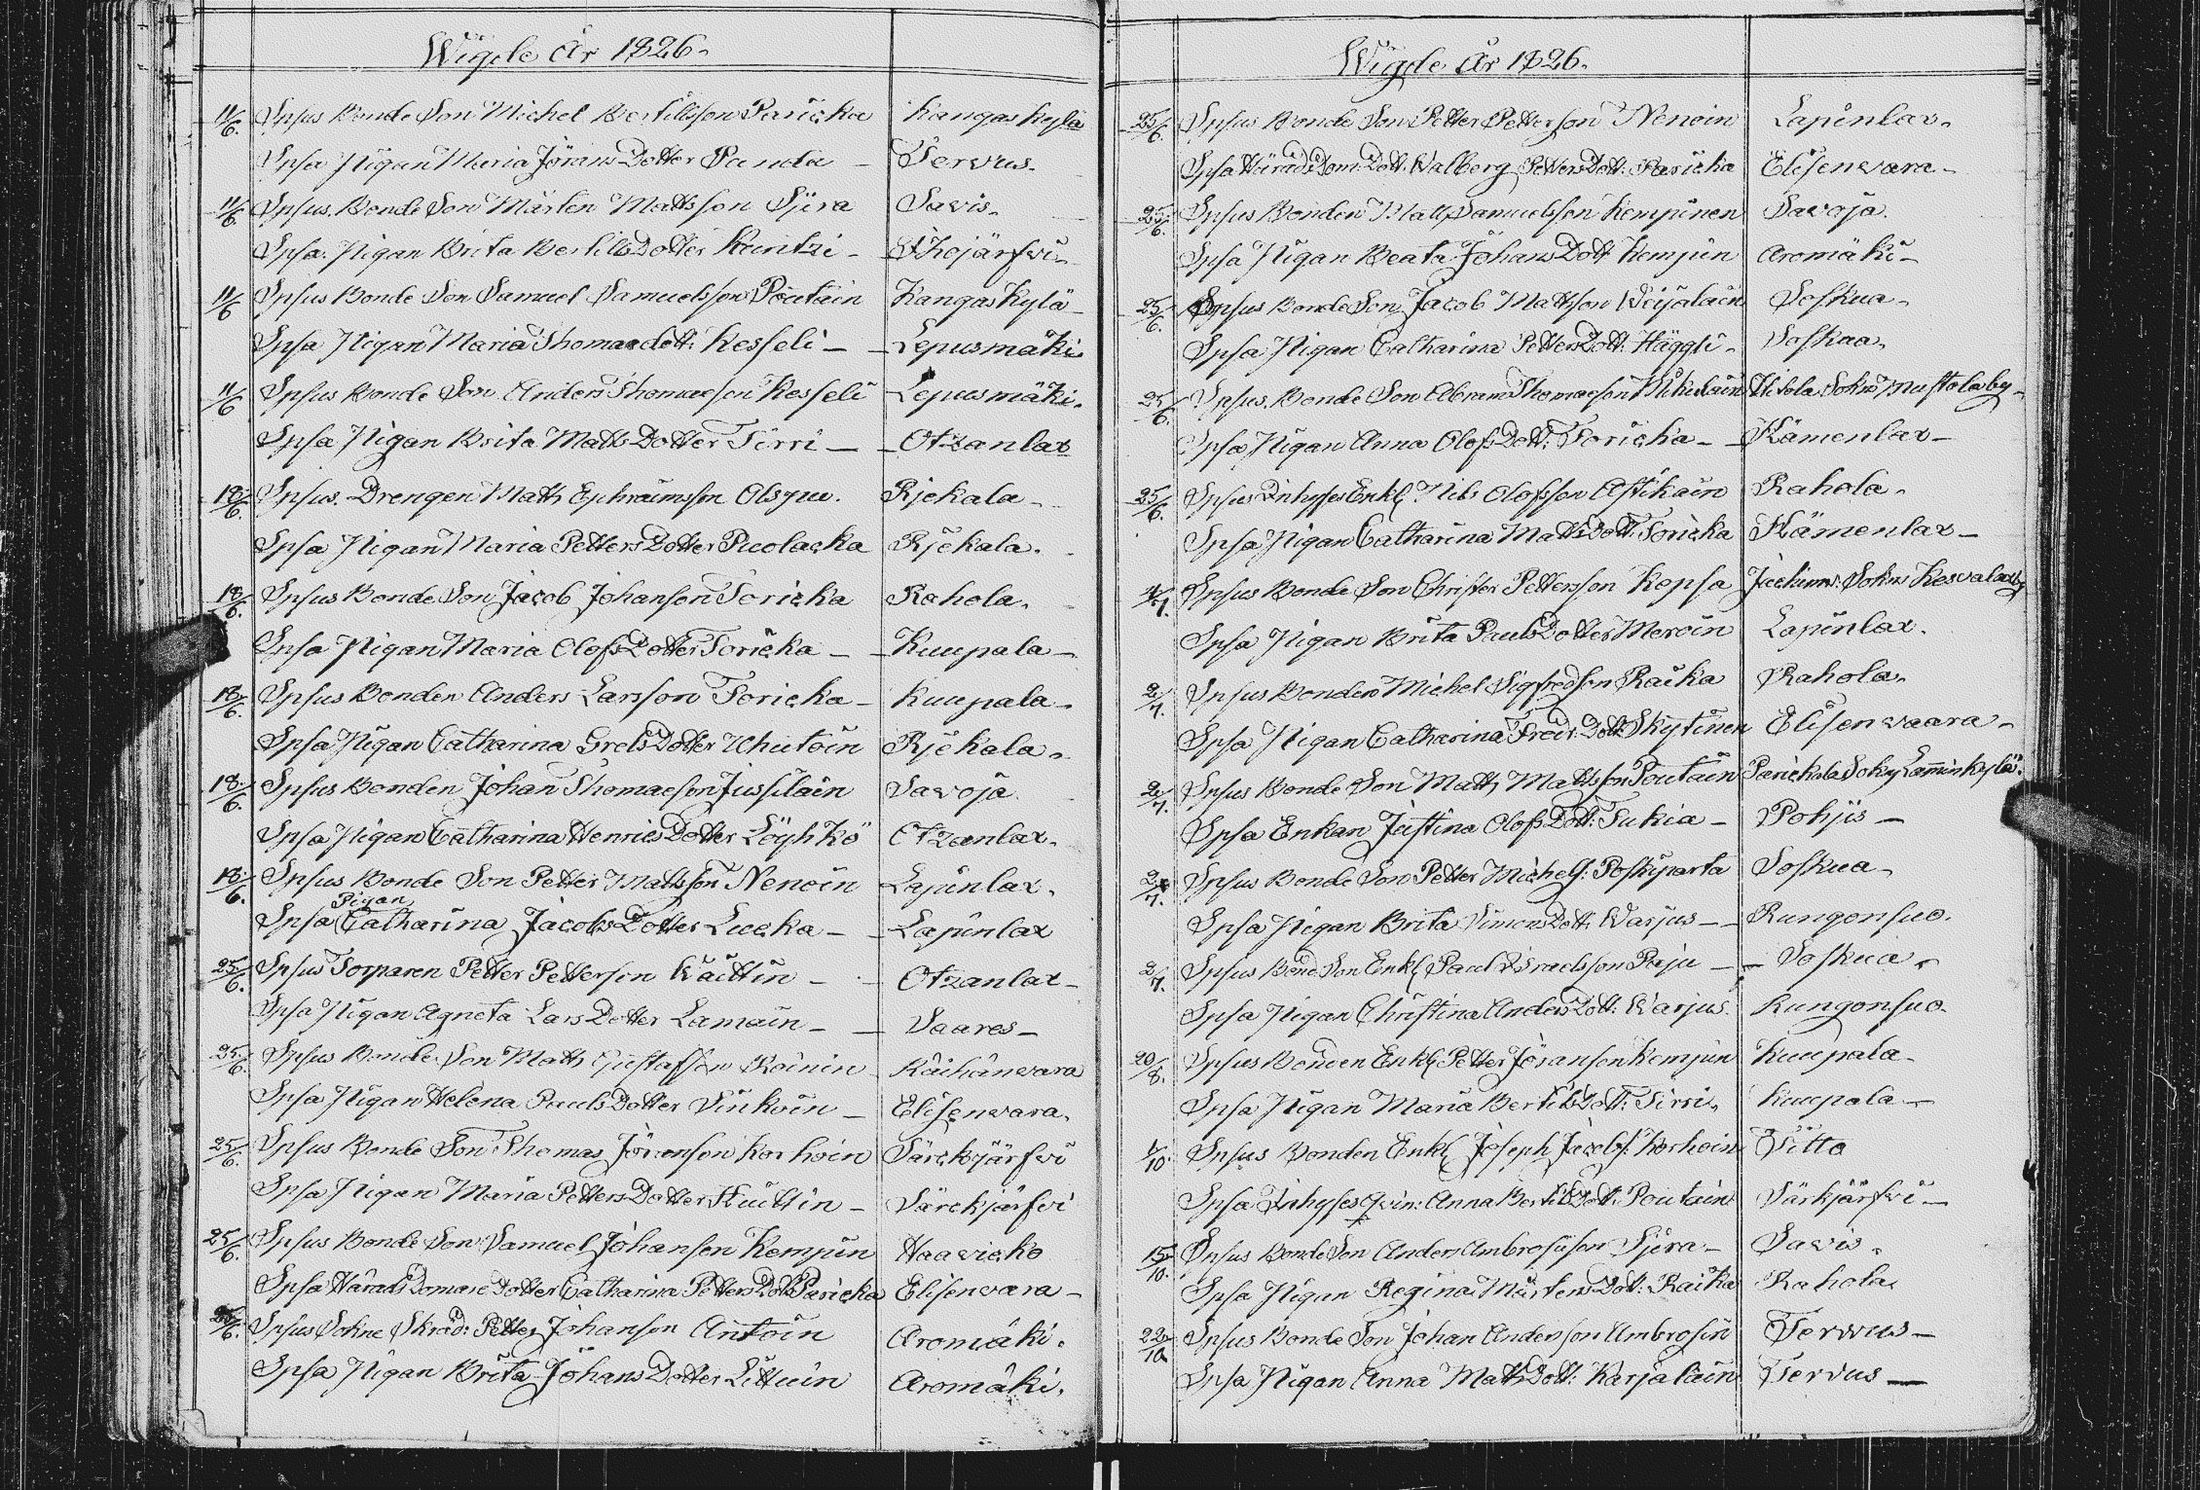 Wigde År 1826.
11/6. Spsus Bonde Son Michel Bertilsson Paricka Kangaskylä
Spsa Pigan Maria Jörans Dotter Panda — Tervus.
11/6 Spsus. Bonde Son Mårten Mattsson Sjera Savis.
Spsa. Pigan Brita Bertils Dotter Kuntzi - Ihojärfvi -
11/6 Spsus Bonde Son Samuel Samuelsson Poutain Kangaskylä -
Spsa Pigan Maria Thomaedott: Kesseli — Lepusmäki
11/6 Spsus Bonde Son Anders Thomaeson Kesseli Lepusmäki.
Spsa Pigan Brita Matts Dotter Tirri — Otzanlax
18/6. Spsus. Drengen Matts Ephraimsson Rjekala -
Spsa Pigan Maria Petters Dotter Picolacka Rjekala.
18/6. Spsus Bonde Son Jacob Johanson Toricka Rahola.
Spsa Pigan Maria Olofs Dotter Toricka — Kuupala -
18/6. Spsus Bonden Anders Larsson Toricka - Kuupala -
Spsa Pigan Catharina Grels Dotter Uhutoin Rjekala -
18/6. Spsus Bonden Johan Thomaeson Jussilain Savoja
Spsa Pigan Catharina Henrics Dotter Löyhkö Otzanlax.
18/6. Spsus Bonde Son Petter Mattsson Nenoin Lapinlax.
Spsa Pigan Catharina Jacobs Dotter Lucka - Lapinlax
25/6. Spsus Torparen Petter Petterson Wäittin - Otzanlax -
Spsa Pigan Agneta Lars Dotter Lamain - Saares -
25/6. Spsus Bonde Son Matts Gustafsson Roinin Räihänvara
Spsa Pigan Helena Pauls Dotter Sinkoin — Elisenvara.
25/6. Spsus Bonde Son Thomas Jöranson Korhoin Särckjärfvi
Spsa Pigan Maria Petters Dotter Huittin - Särckjärfvi
25/6. Spsus Bonde Son Samuel Johanson Kempin Haavicko
Spsa Härads Domare Dotter Catharina Petters Dott. Paricka Elisenvara -
25/6. Spsus Sokne Skräd: Petter Johanson Antoin Aromäki.
Spsa Pigan Brita Johans Dotter Littuin Aromäki.
Wigde År 1826.
25/6. Spsus Bonde Son Petter Petterson Nenoin Lapinlax.
Spsa Härads Dom: Dott. Walberg Petters Dott: Paricka Elisenvara -
25/6. Spsus Bonden Matts Samuelsson Kempinen Savoja.
Spsa Pigan Beata Johans Dott Kempin Aromäki -
25/6. Spsus Bonde Son Jacob Mattsson Weijalain Soskua -
Spsa Pigan Catharina Petters Dott. Häggli - Soskua.
25/6. Spsus. Bonde Son Abram Thomaeson Mikulain Hitola Sokn Mustola by -
Spsa Pigan Anna Olofs Dott: Toricka - Hämenlax -
25/6. Spsus Inhyses Enkl Nils Olofsson Astikain Rahola.
Spsa Pigan Catharina Matts Dott. Toricka Hämenlax -
/7. Spsus Bonde Son Christer Pettersson Kopsa Jackimv. Sokn Kesvalax by
Spsa Pigan Brita Pauls Dotter Meroin Lapinlax.
2/7. Spsus Bonden Michel Sigfredson Raika Rahola.
Spsa Pigan Catharina Fredr: Dott. Skytinen Elisenvaara -
2/7. Spsus Bonde Son Matts Mattsson Poutain Parickala Sokn Laminkylä.
Spsa Enkan Justina Olofs Dott: Tukia - Pohjis -
2/7. Spsus Bonde Son Petter Michels: Poskiparta Soskua -
Spsa Pigan Brita Simons Dott: Warjus - Rungonsuo.
2/7. Spsus Bond Son Enkl Paul Israelsson Paju - Soskua.
Spsa Pigan Christina Anders Dott: Warjus. Rungonsuo.
20/8. Spsus Bonden Enkl Petter Jöranson Kempin Kuupala -
Spsa Pigan Maria Bertils Dott: Tirri. Kuupala -
1/10. Spsus Bonden Enkl Joseph Jacobs: Korhoin Ditto
Spsa Inhyses Qvin: Anna Bertils Dott: Poutain Särkjärfvi -
15/10. Spsus Bonde Son Anders Ambrosiison Sjera - Savis.
Spsa Pigan Regina Mårtens Dott: Raika Rahola.
22/10 Spsus Bonde Son Johan Andersson Ambrosin Tervus -
Spsa Pigan Anna Matts Dott: Karjalain Tervus —